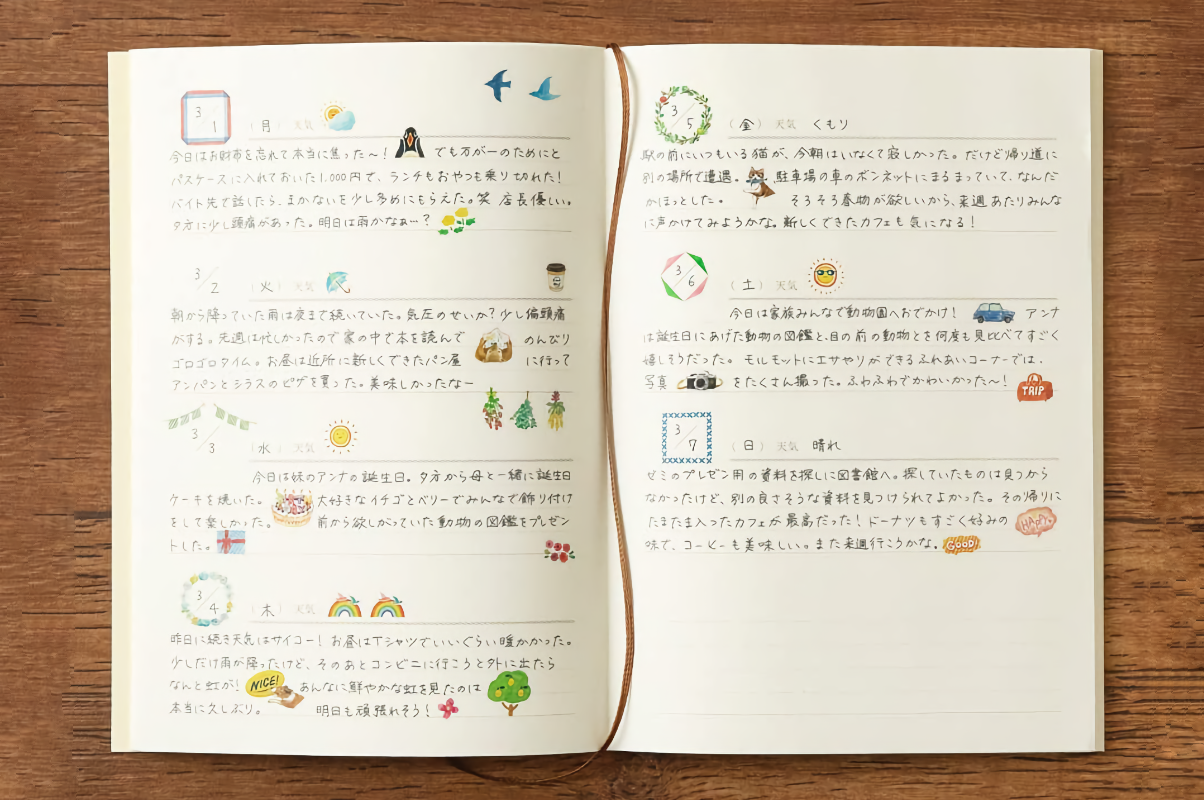 3/1 (月) 天気
今日はお財布を忘れて本当に焦った〜! でも万が一のためにと
パスケースに入れておいた1,000円で、ランチもおやつも乗り切れた!
バイト先で話したら、まかないを少し多めにもらえた。笑 店長優しい。
夕方に少し頭痛があった。明日は雨かなぁ…?
3/2 (火) 天気
朝から降っていた雨は夜まで続いていた。気圧のせいか?少し偏頭痛
がする。先週は忙しかったので家の中で本を読んで のんびり
ゴロゴロタイム。お昼は近所に新しくできたパン屋 に行って
アンパンとシラスのピザを買った。美味しかったなー
3/3 (水) 天気
今日は妹のアンナの誕生日。夕方から母と一緒に誕生日
ケーキを焼いた。 大好きなイチゴとベリーでみんなで飾り付け
をして楽しかった。 前から欲しがっていた動物の図鑑をプレゼン
トした。
3/4 (木) 天気
昨日に続き天気はサイコー! お昼はTシャツでいいくらい暖かかった。
少しだけ雨が降ったけど、そのあとコンビニに行こうと外に出たら
なんと虹が! NICE! あんなに鮮やかな虹を見たのは
本当に久しぶり。 明日も頑張れそう!
3/5 (金) 天気 くもり
駅の前にいつもいる猫が、今朝はいなくて寂しかった。だけど帰り道に
別の場所で遭遇。 駐車場の車のボンネットにまるまっていて、なんだ
かほっとした。 そろそろ春物が欲しいから、来週あたりみんな
に声かけてみようかな。新しくできたカフェも気になる!
3/6 (土) 天気
今日は家族みんなで動物園へおでかけ! アンナ
は誕生日にあげた動物の図鑑と、目の前の動物とを何度も見比べてすごく
嬉しそうだった。 モルモットにエサやりができるふれあいコーナーでは、
写真 をたくさん撮った。ふわふわでかわいかった〜! TRIP
3/7 (日) 天気 晴れ
ゼミのプレゼン用の資料を探しに図書館へ。探していたものは見つから
なかったけど、別の良さそうな資料を見つけられてよかった。その帰りに
たまたま入ったカフェが最高だった!ドーナツもすごく好みの HAPPY
味で、コーヒーも美味しい。また来週行こうかな。 GOOD!